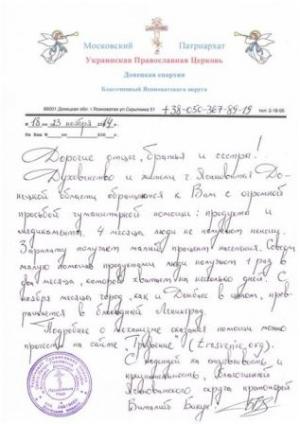 Московский Патриархат
Украинская Православная Церковь
Донецкая епархия
Благочинный Ясиноватского округа
86001 Донецкая обл. г. Ясиноватая ул. Скрыпника 51 +38-050-367-89-19 тел. 2-18-05
с 18-23 ноября 14г.
На Ваш №
Дорогие отцы, братья и сестры!
Духовенство и жители г. Ясиноватая До-
нецкой области обращаются к Вам с огромной
просьбой гуманитарной помощи: продукты и
медикаменты. 4 месяца люди не получают пенсию.
Зарплату получает малый процент населения. Совсем
малую помощь продуктами люди получают 1 раз в
два месяца, которой хватает на несколько дней. С
ноября месяца город, как и Донбасс в целом, прев-
ращается в блокадный Ленинград.
Подробнее о механизме оказания помощи можно
прочесть на сайте
С надеждой на отзывчивость и
Благочинный
Ясиноватского округа протоиерей
Виталий